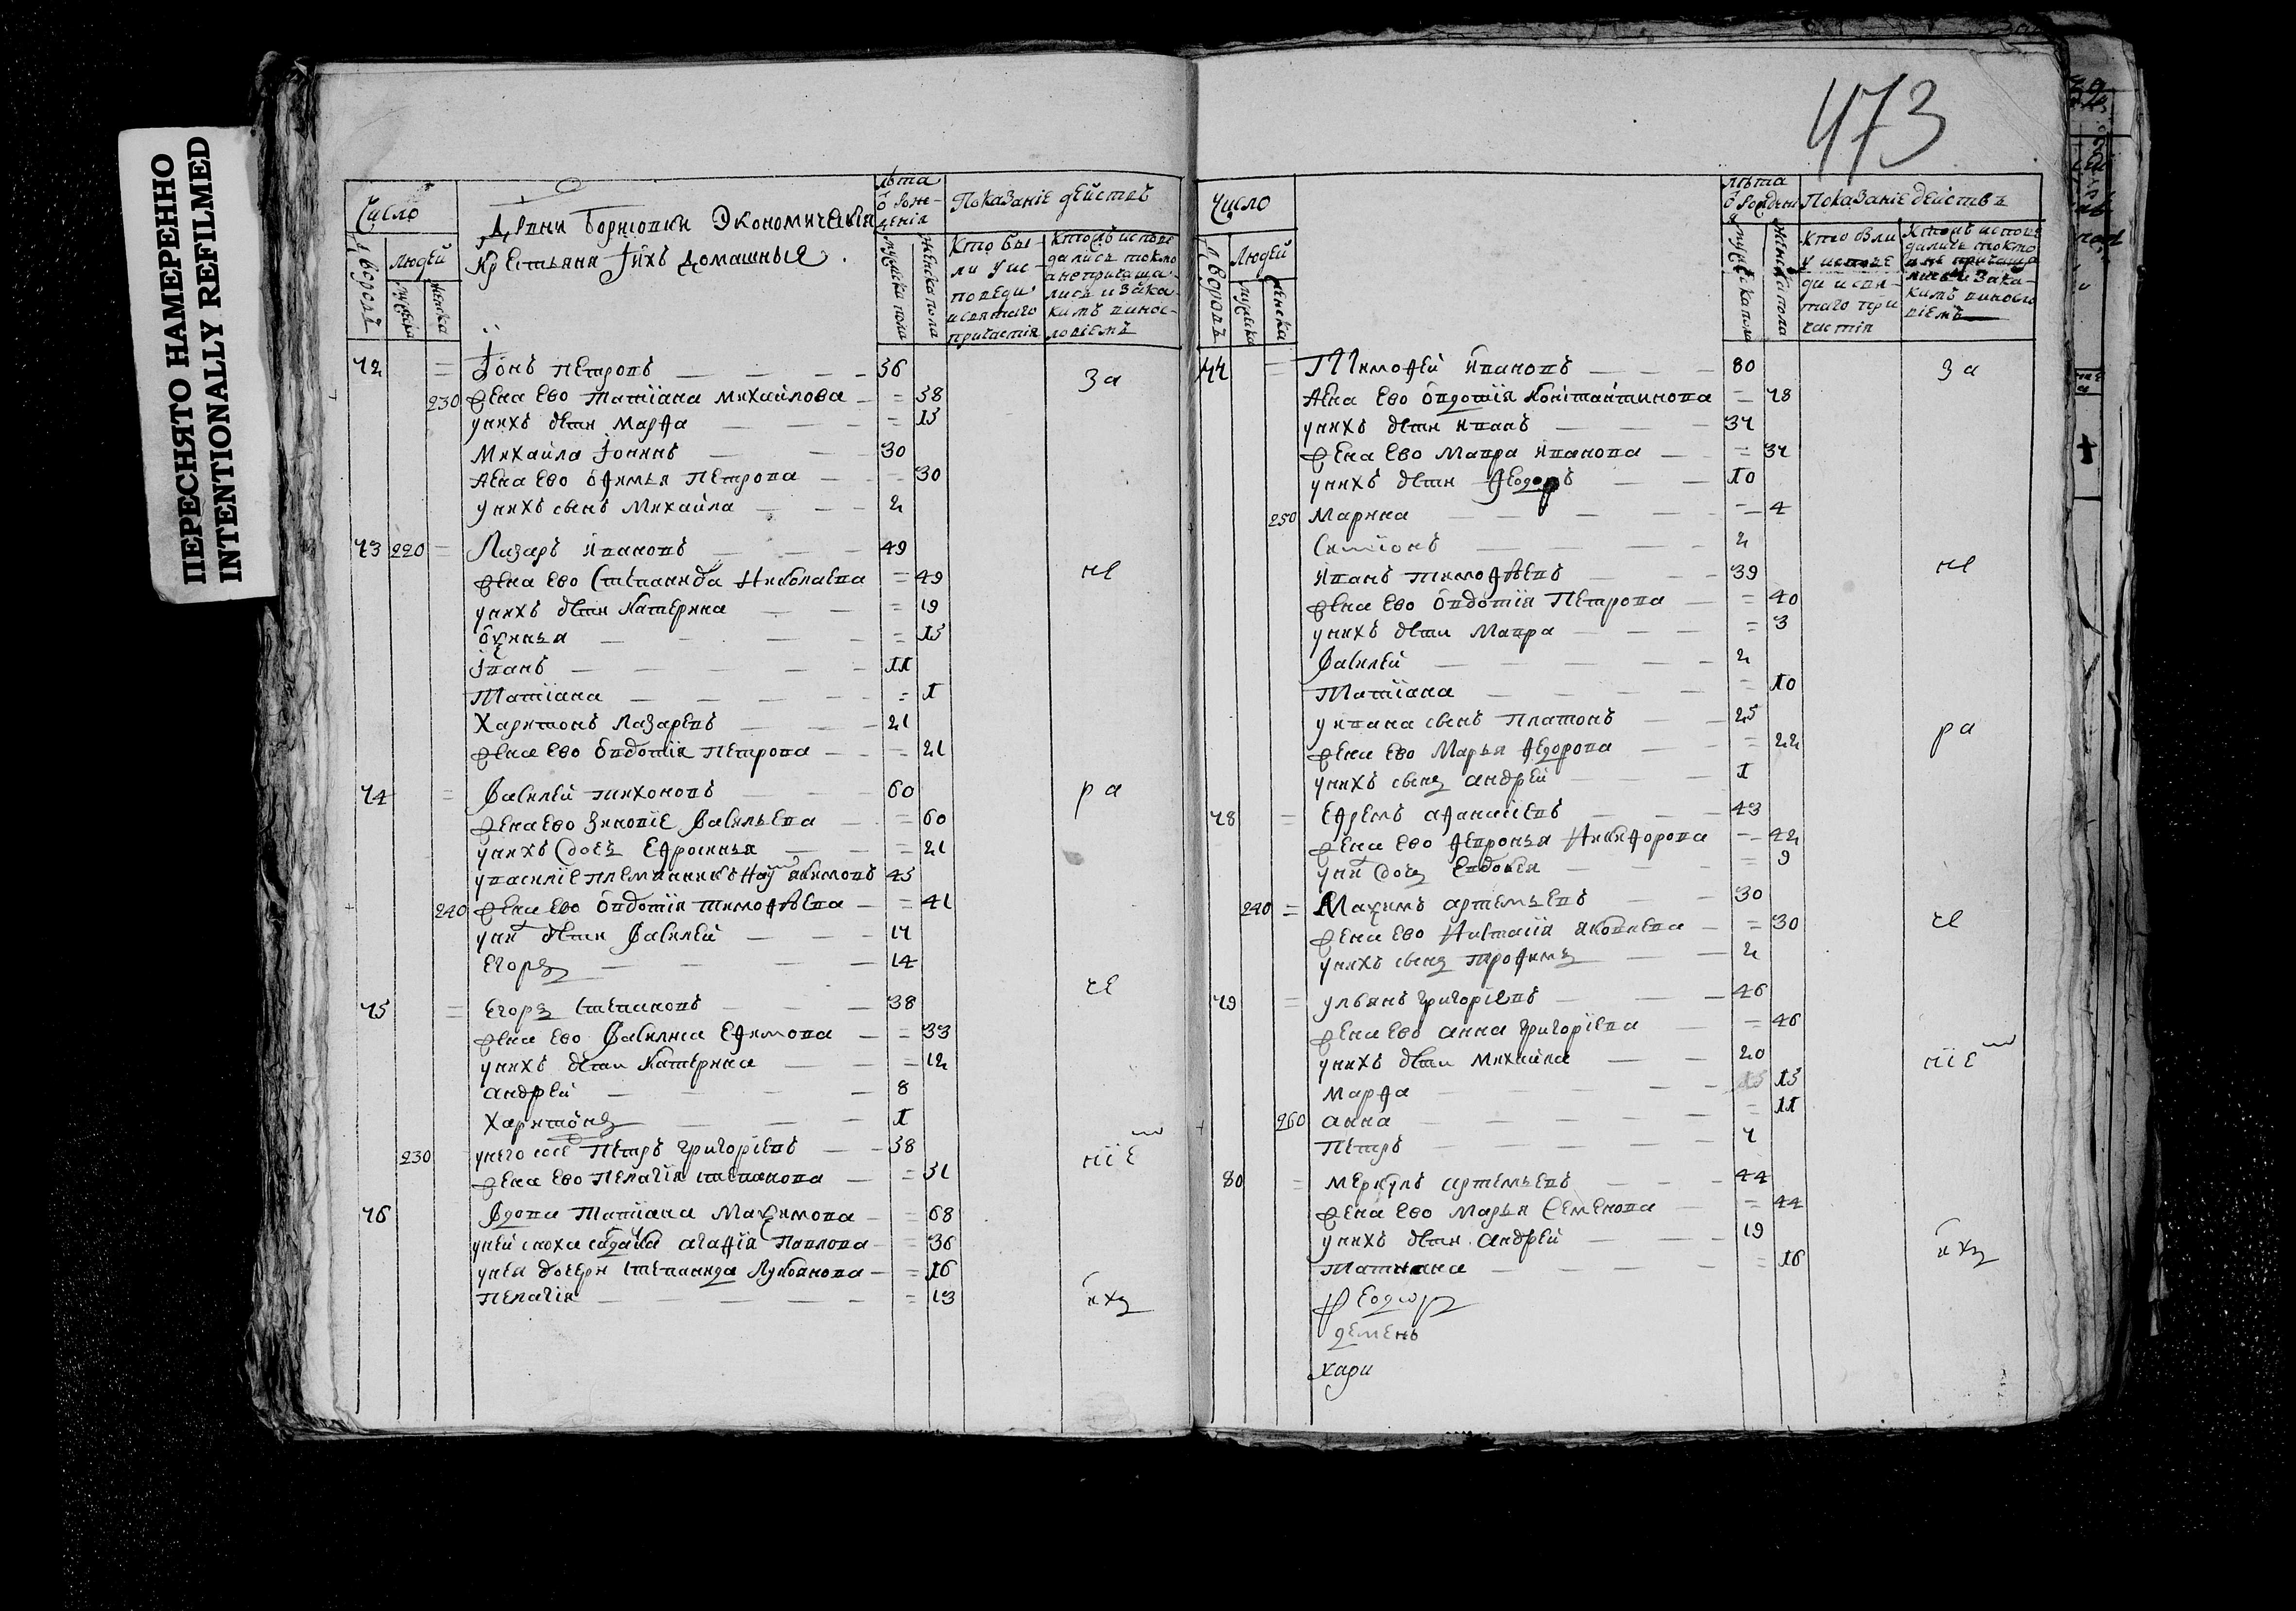 ПЕРЕСНЯТО НАМЕРЕННО
INTENTIONALLY REFILMED
473
Число
Дрвни Экономическия
крестьяня и ихъ домашныя
лѣта
ѿ рож-
дения
Показаніе действъ
дворовъ
людей
мужска
женска
мужска пола
женска пола
Кто бы-
ли у ис-
поведи
и святаго
причастія
Кто испове
дались токмо
а не причаща-
лись и за ка-
кимъ винос-
ловіемъ
72 = Іонъ Петровъ 36 за
230 жена ево Татіана Михайлова = 38
у нихъ дети Марѳа = 15
Михайла Іонинъ 30
жена ево Офимья Петрова - 30
у нихъ сынъ Михайла 2
73 220 = Лазарь Ивановъ 49
жена ево Степанида Николаева = 49 не
у нихъ дети Катерина = 19
Оксинья = 15
Іванъ 11
Татіана = 1
Харитонъ Лазаревъ 21
жена ево Овдотія Петрова = 21
74 = Василей Тихоновъ 60 ра
жена ево Зиновіе Васильева = 60
у нихъ дочь Ефросинья = 21
у Василіе племянникъ Наум Якимовъ 45
240 жена ево Овдотія Тимофѣева = 41
у них дети Василей 17
Егоръ 14
че
75 = Егоръ Степановъ 38
жена ево Василиса Ефимова = 33
у нихъ дети Катерина = 12
Андрей 8
Харитонъ 1
230 у него Петръ Григоріевъ 38 ніе
жена ево Пелагія Степанова = 31
76 Вдова Татіана Максимова = 68
у ней сноха Агафія Павлова = 36
у нея дочери Степанида Лукьянова = 16
Пелагія = 13 ихъ
Число
лѣта
ѿ рождени
я
Показаніе действъ
дворовъ
людей
мужска
женска
мужска пола
женска пола
кто были
у испове
ди и свя-
таго при
частія
Кто испове
дались токмо
а не причаща
лись и за ка-
кимъ винosло
віемъ
77 = Тимофей Ивановъ 80 за
Жена ево Овдотія Константинова = 78
у нихъ дети Иванъ 37
жена ево Мавра Иванова = 37
у нихъ дети Ѳеодоръ 10
250 Марина = 4
Симіонъ 2
Иванъ Тимофѣевъ 39 не
жена ево Овдотія Петрова = 40
у нихъ дети Мавра = 3
Василей 2
Татіана = 10
у Ивана сынъ Платонъ 25
жена ево Марья Ѳедорова = 22 ра
у нихъ сынъ Андрей 1
78 = Ефремъ Афанасіевъ 43
жена ево Февронья Никифорова = 42
у них дочь Евдокея = 9
240 = Максимъ Артемьевъ 30
жена ево Настасія Яковлева = 30 че
у нихъ сынъ Трофимъ 2
79 = Ульянъ Григоріевъ 46
жена ево Анна Григоріева = 46
у нихъ дети Михайла 20 ніе
Марфа 15
260 Анна = 11
Петръ 7
80 = Меркулъ Артемьевъ 44
жена ево Марья Семенова = 44
у нихъ дети Андрей 19
Татиана = 16 ихъ
Ѳеодоръ
демень
хари